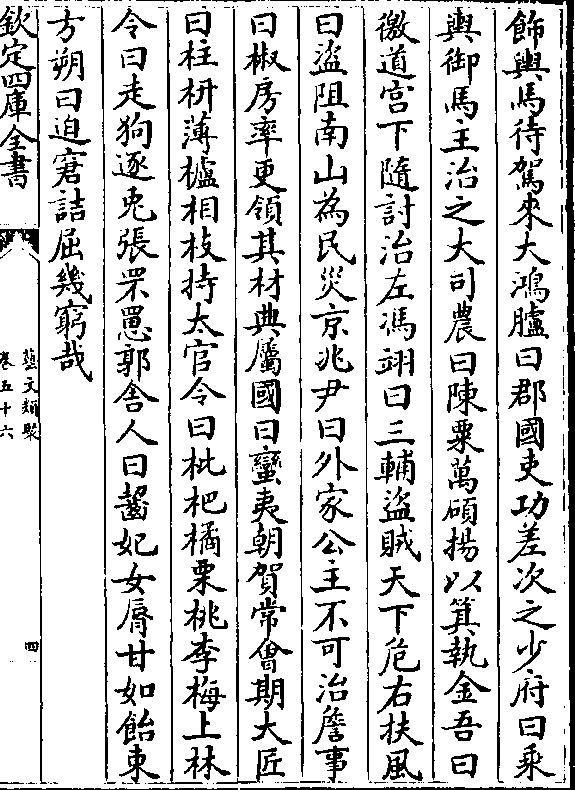 飾輿馬待駕來大鴻臚曰郡國吏功差次之少府曰乘
輿御馬主治之大司農曰陳粟萬碩揚以箕執金吾曰
徼道宫下隨討治左馮翊曰三輔盗賊天下危右扶風
曰盗阻南山為民災京兆尹曰外家公主不可治詹事
曰椒房率更領其材典屬國曰蠻夷朝賀常㑹期大匠
曰柱枅薄櫨相枝持太官令曰枇杷橘栗桃李梅上林
令曰走狗逐兎張罘罳郭舍人曰齧妃女脣甘如飴東
方朔曰迫窘詰屈幾窮哉
欽定四庫全書
藝文類聚
卷五十六
四